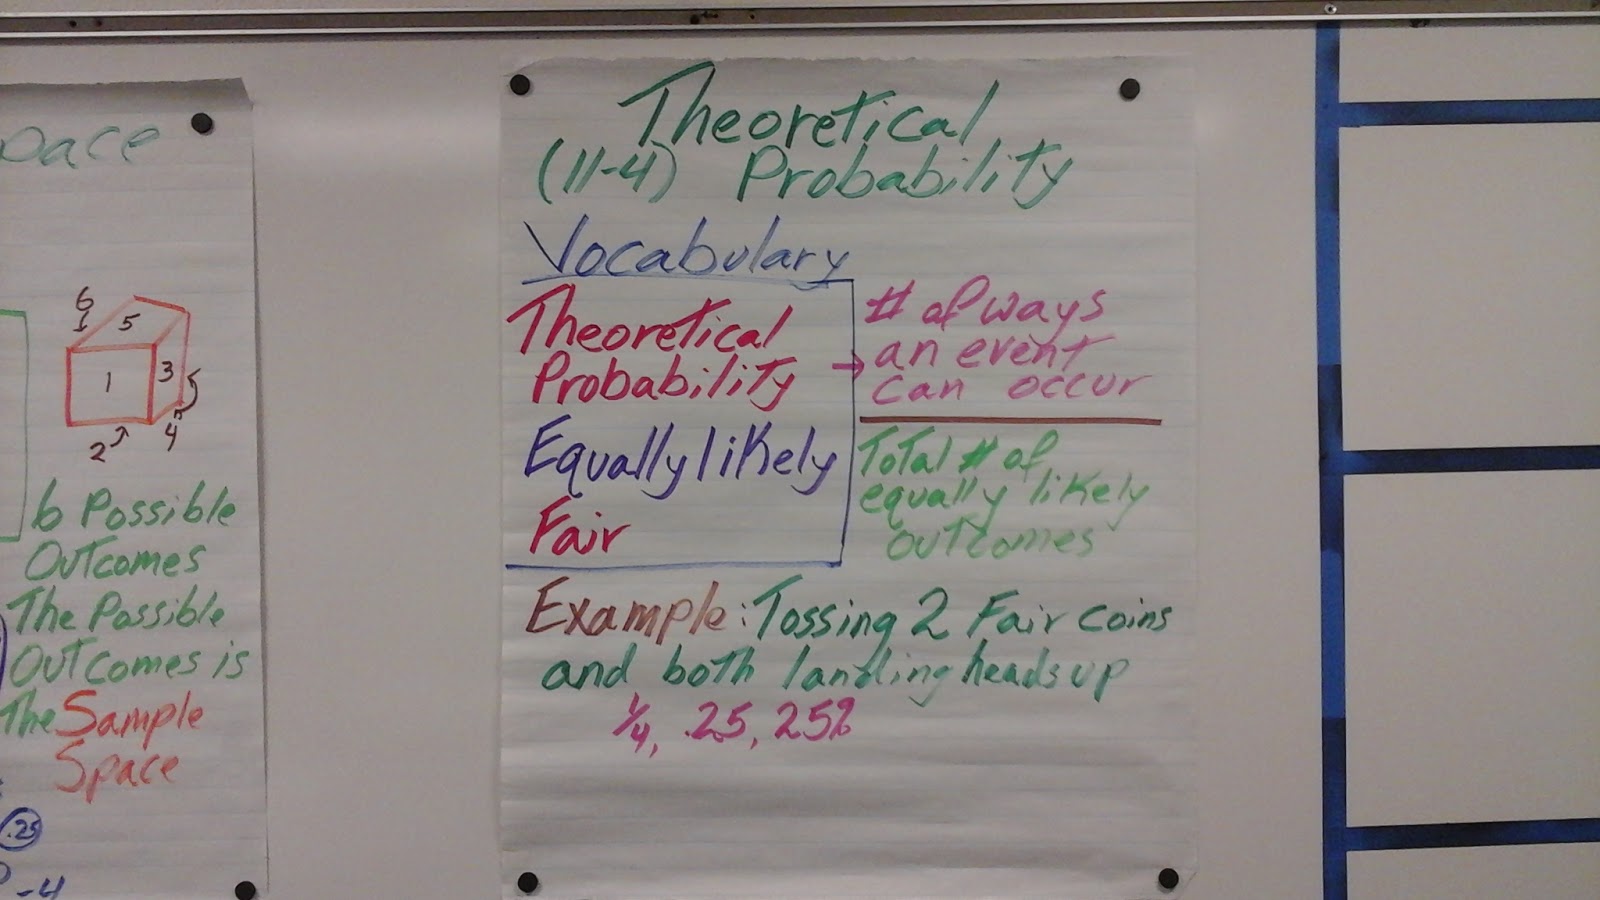 pace
6
5
1
3
5
2
4
6 Possible
Outcomes
The Possible
Outcomes is
The Sample
Space
.25
-4
Theoretical
(11-4) Probability
Vocabulary
Theoretical
Probability
Equally likely
Fair
# of ways
an event
can occur
Total # of
equally likely
outcomes
Example: Tossing 2 Fair coins
and both landing heads up
1/4, .25, 25%